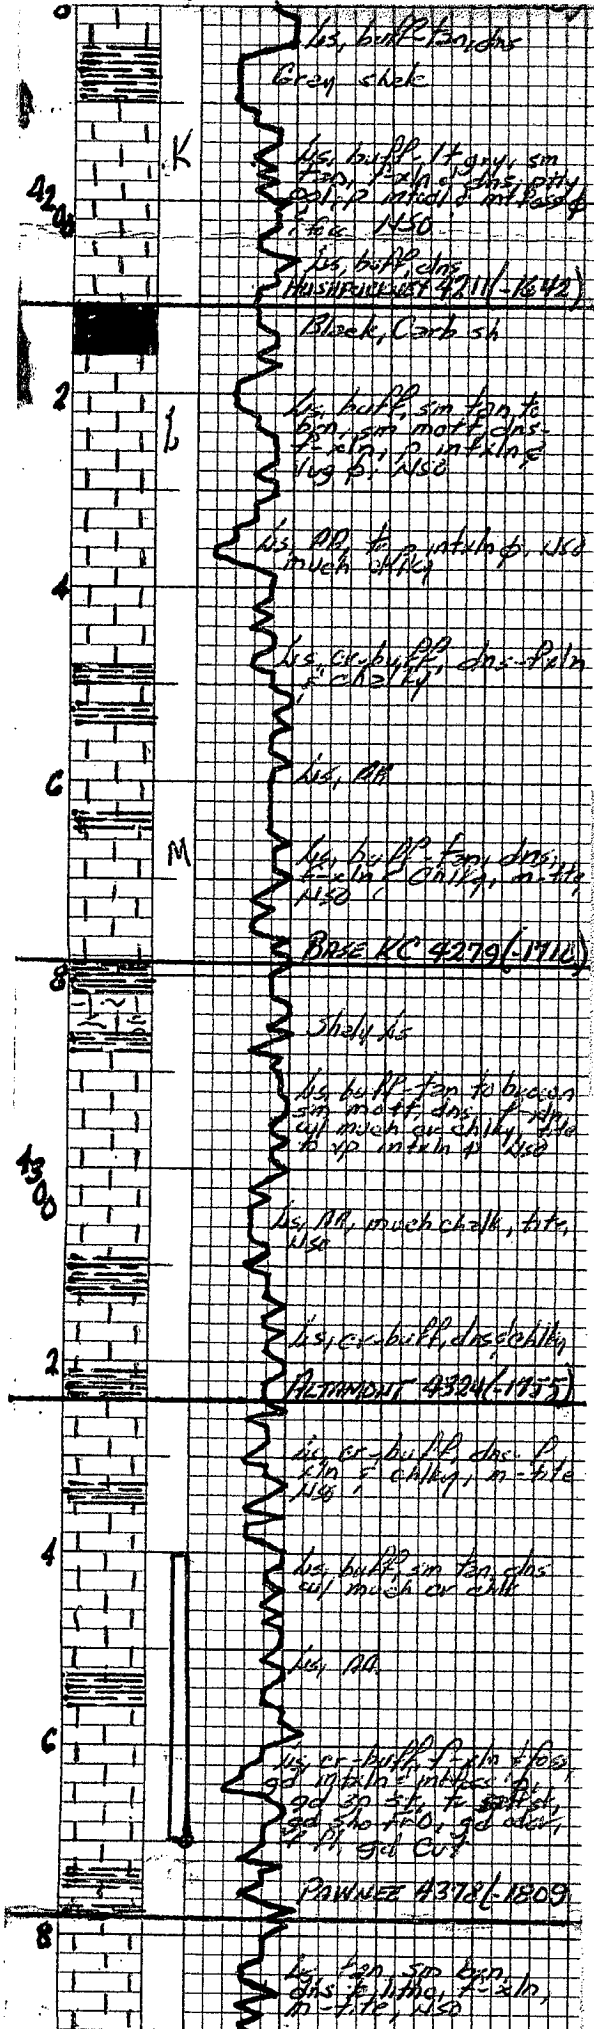 0
Ls, buff-tan, dns
Grey shale
K
Ls, buff, lt gry, sm
tan, f-xln & dns, prty
4200
NSO
Ls, buff, dns
HUSHPUCKNEY 4211(-1642)
Black, Carb sh
2
L
Ls, buff, sm tan to
brn, sm mott, dns-
f-xln, p intxln &
vug ϕ, NSO
Ls, AA, to p intxln ϕ, NSO
much chlky
4
Ls, cr-buff, dns-fxln
& chalky
6
Ls, AA
M
Ls, buff-tan, dns,
f-xln & chlky, n-tite,
NSO
BASE KC 4279(-1710)
8
Shaly Ls
Ls, buff-tan to brown
sm mott, dns, f-xln,
w/ much cr chlky, tite
to vp intxln ϕ NSO
4300
Ls, AA, much chalk, tite,
NSO
Ls, cr-buff, dns & chlky
2
ALTAMONT 4324(-1755)
Ls, cr-buff, dns-f
xln & chlky, n-tite
NSO
4
Ls, buff, sm tan, dns
w/ much cr chlk
Ls, AA
6
Ls, cr-buff, f-xln & foss,
gd intxln & intfoss ϕ,
gd sho fr O, gd odor,
gd cut
PAWNEE 4378(-1809
8
Ls, tan, sm brn,
dns to litho, f-xln,
n-tite, NSO